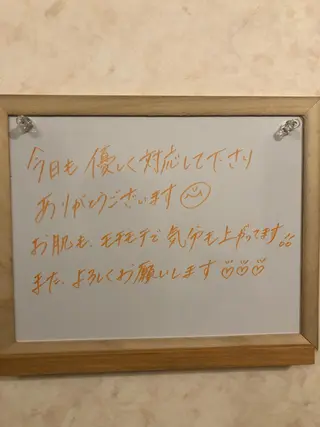 今日も優しく対応して下さり
ありがとうございます
お肌も、モチモチで気分も上がってます
また、よろしくお願いします♡♡♡